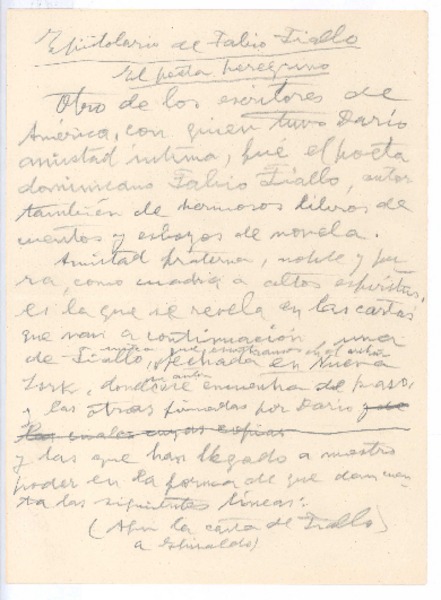 Epistolario de Fabio Fiallo
El poeta peregrino
Otro de los escritores de
América, con quien tuvo Darío
amistad íntima, fue el poeta
dominicano Fabio Fiallo, autor
también de hermosos libros de
cuentos y esbozos de novela.
Amistad fraterna, noble y pu
ra, como cuadra a altos espíritus,
es la que se revela en las cartas
que van a continuación, una
única que encontramos en el archivo
de Fiallo, fechada en Nueva
York, donde se encuentra de paso,
y las otras firmadas por Darío y de
las cuales cuyas copias
y las que han llegado a nuestro
poder en la forma de que dan cuen
ta las siguientes líneas:
(Aquí la carta de Fiallo
a Ghiraldo)